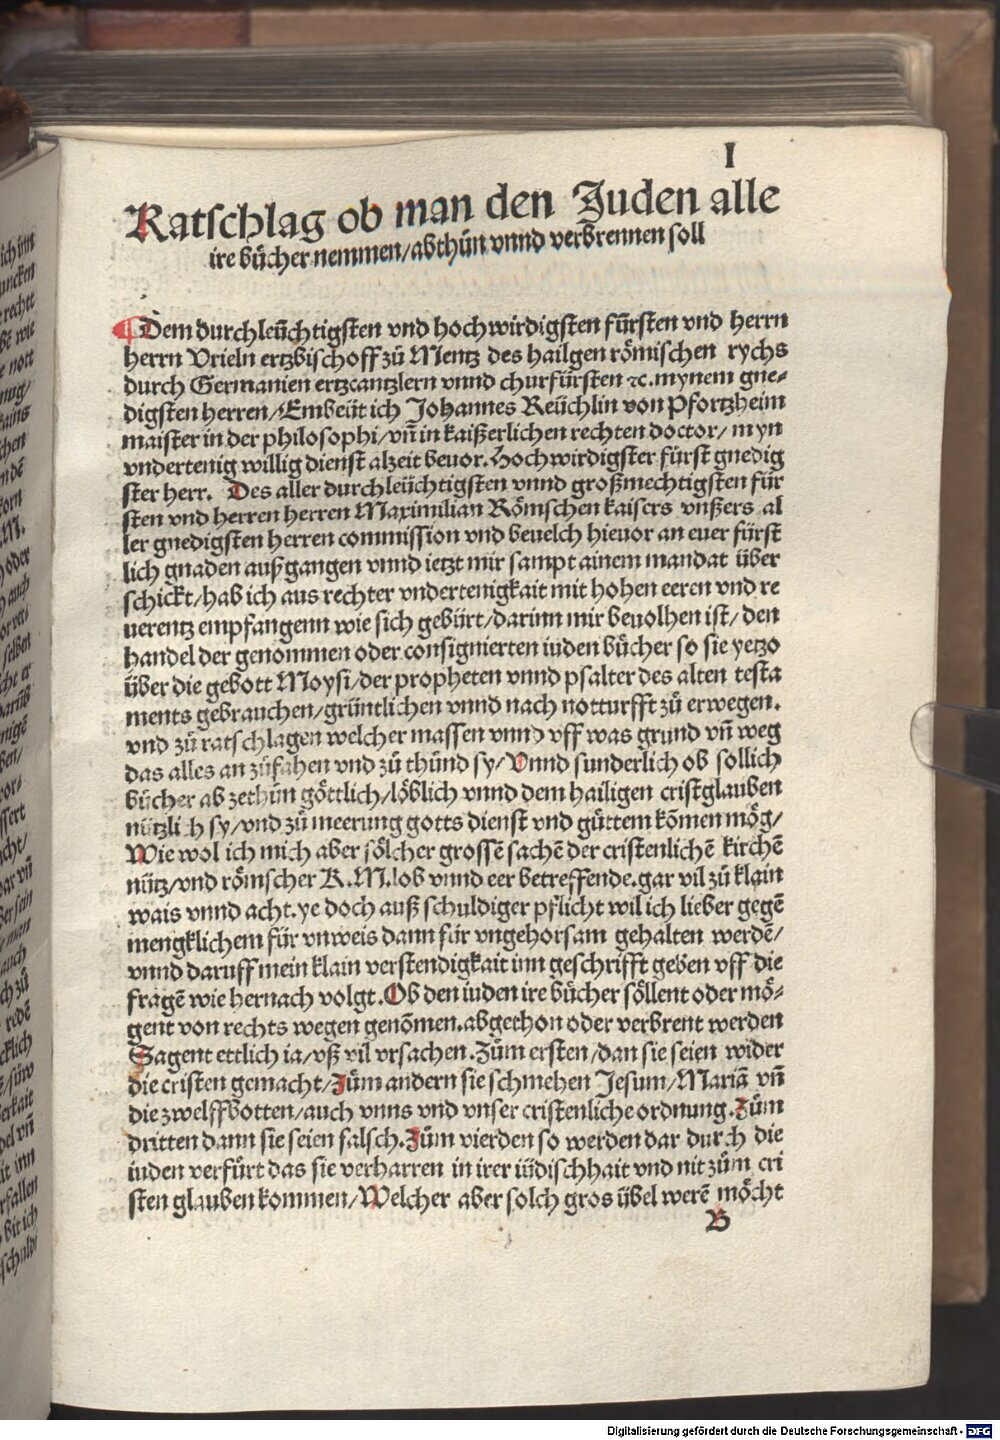 I
Ratschlag ob man den Juden alle
ire bücher nemmen/abthůn vnnd verbrennen soll
¶ Dem durchleüchtigsten vnd hochwirdigsten fürsten vnd herrn
herrn Vrieln ertzbischoff zů Mentz des hailgen römischen rychs
durch Germanien ertzcantzlern vnnd churfürsten ⁊c. mynem gne⸗
digsten herren/Embeüt ich Johannes Reüchlin von Pfortzheim
maister in der philosophi/vñ in kaißerlichen rechten doctor/ myn
vndertenig willig dienst alzeit beuor. Hochwirdigster fürst gnedig
ster herr. Des aller durchleüchtigsten vnnd großmechtigsten für
sten vnd herren herren Maximilian Römschen kaisers vnßers al
ler gnedigsten herren commission vnd beuelch hieuor an euer fürst
lich gnaden außgangen vnnd ietzt mir sampt ainem mandat über
schickt/hab ich aus rechter vndertenigkait mit hohen eeren vnd re
uerentz empfangenn wie sich gebürt/darinn mir beuolhen ist/ den
handel der genommen oder consignierten iuden bücher so sie yetzo
über die gebott Moysi/der propheten vnnd psalter des alten testa
ments gebrauchen/grüntlichen vnnd nach notturfft zů erwegen.
vnd zů ratschlagen welcher massen vnnd vff was grund vñ weg
das alles an zůfahen vnd zů thůnd sy/Vnnd sunderlich ob sollich
bücher ab zethůn göttlich/löblich vnnd dem hailigen cristglauben
nützlich sy/vnd zů meerung gotts dienst vnd gůttem kõmen mög/
Wie wol ich mich aber sölcher grossẽ sachẽ der cristenlichẽ kirchẽ
nütz/vnd römischer K.M.lob vnnd eer betreffende.gar vil zů klain
wais vnnd acht.ye doch auß schuldiger pflicht wil ich lieber gegẽ
mengklichem für vnweis dann für vngehorsam gehalten werdẽ/
vnnd daruff mein klain verstendigkait inn geschrifft geben vff die
fragẽ wie hernach volgt.Ob den iuden ire bücher söllent oder mö⸗
gent von rechts wegen genõmen.abgethon oder verbrent werden
Sagent ettlich ia/vß vil vrsachen.Zům ersten/dan sie seien wider
die cristen gemacht/Zům andern sie schmehen Jesum/Mariã vñ
die zwelffbotten/auch vnns vnd vnser cristenliche ordnung.Zům
dritten dann sie seien falsch.Zům vierden so werden dar durch die
iuden verfürt das sie verharren in irer iüdischhait vnd nit zům cri
sten glauben kommen/Welcher aber solch gros übel werẽ möcht
B
Digitalisierung gefördert durch die Deutsche Forschungsgemeinschaft - DFG